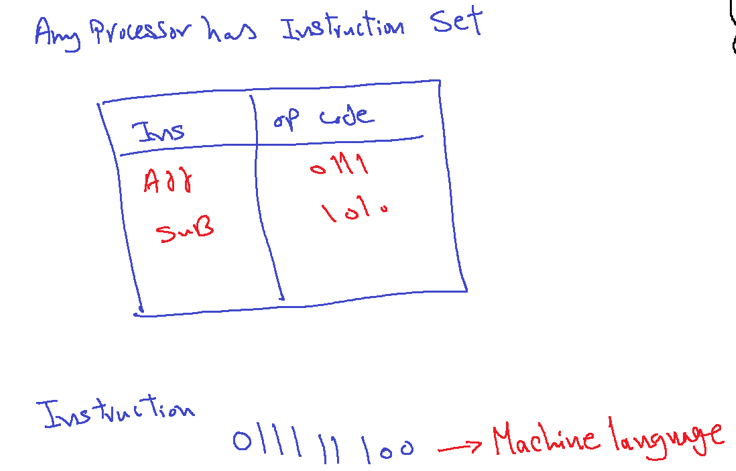 Any Processor has Instruction Set
Ins op code
Add 0111
SuB 1010
Instruction
0111 11 100 → Machine language